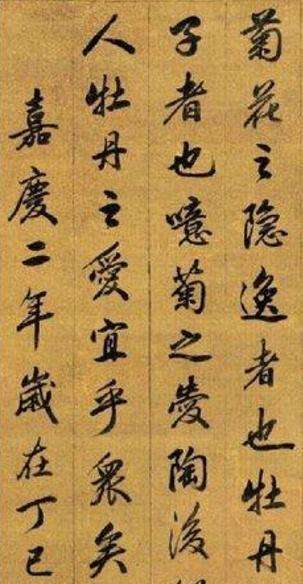 菊花之隐逸者也牡丹
子者也噫菊之愛陶後
人牡丹之愛宜乎眾矣
嘉慶二年歲在丁巳